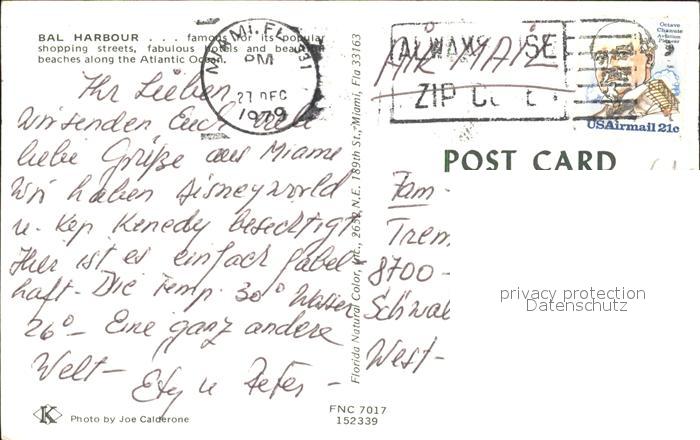 BAL HARBOUR . . . famous for its popular
shopping streets, fabulous hotels and beautiful
beaches along the Atlantic Ocean.
MIAMI, FL
PM
27 DEC
1979
AIR MAIL
ALWAYS USE
ZIP CODE
Octave
Chanute
Aviation
Pioneer
USAirmail 21c
POST CARD
Ihr Lieben
Wir senden Euch
liebe Grüße aus Miame
Wir haben Disneyworld
u. Kep Kenedy besechtigt
Hier ist es einfach fabel-
haft. Die Temp. 30° Wasser
26° – Eine ganz andere
Welt –
u Peter –
Fam
Trem
8700 -
Schwal
West-
privacy protection
Datenschutz
Florida Natural Color, Inc., 2652 N.E. 189th St., Miami, Fla 33163
K
Photo by Joe Calderone
FNC 7017
152339